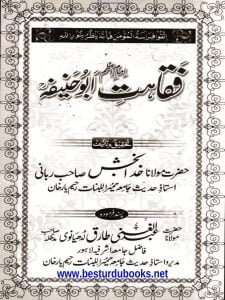 اتقوا فراسة المؤمن فانه ينظر بنور الله
امام اعظم
فقاہت ابو حنیفہ
تحقیق و تالیف
حضرت مولانا خدا بخش صاحب ربانی
استاذ حدیث جامعہ للبنات رحیم یار خان
پسند فرمودہ
حضرت مولانا المفتی طارق لدھیانوی صاحب مدظلہ
فاضل جامعہ اشرفیہ لاہور
مدیر و استاذ حدیث جامعہ للبنات رحیم یار خان
www.besturdubooks.net